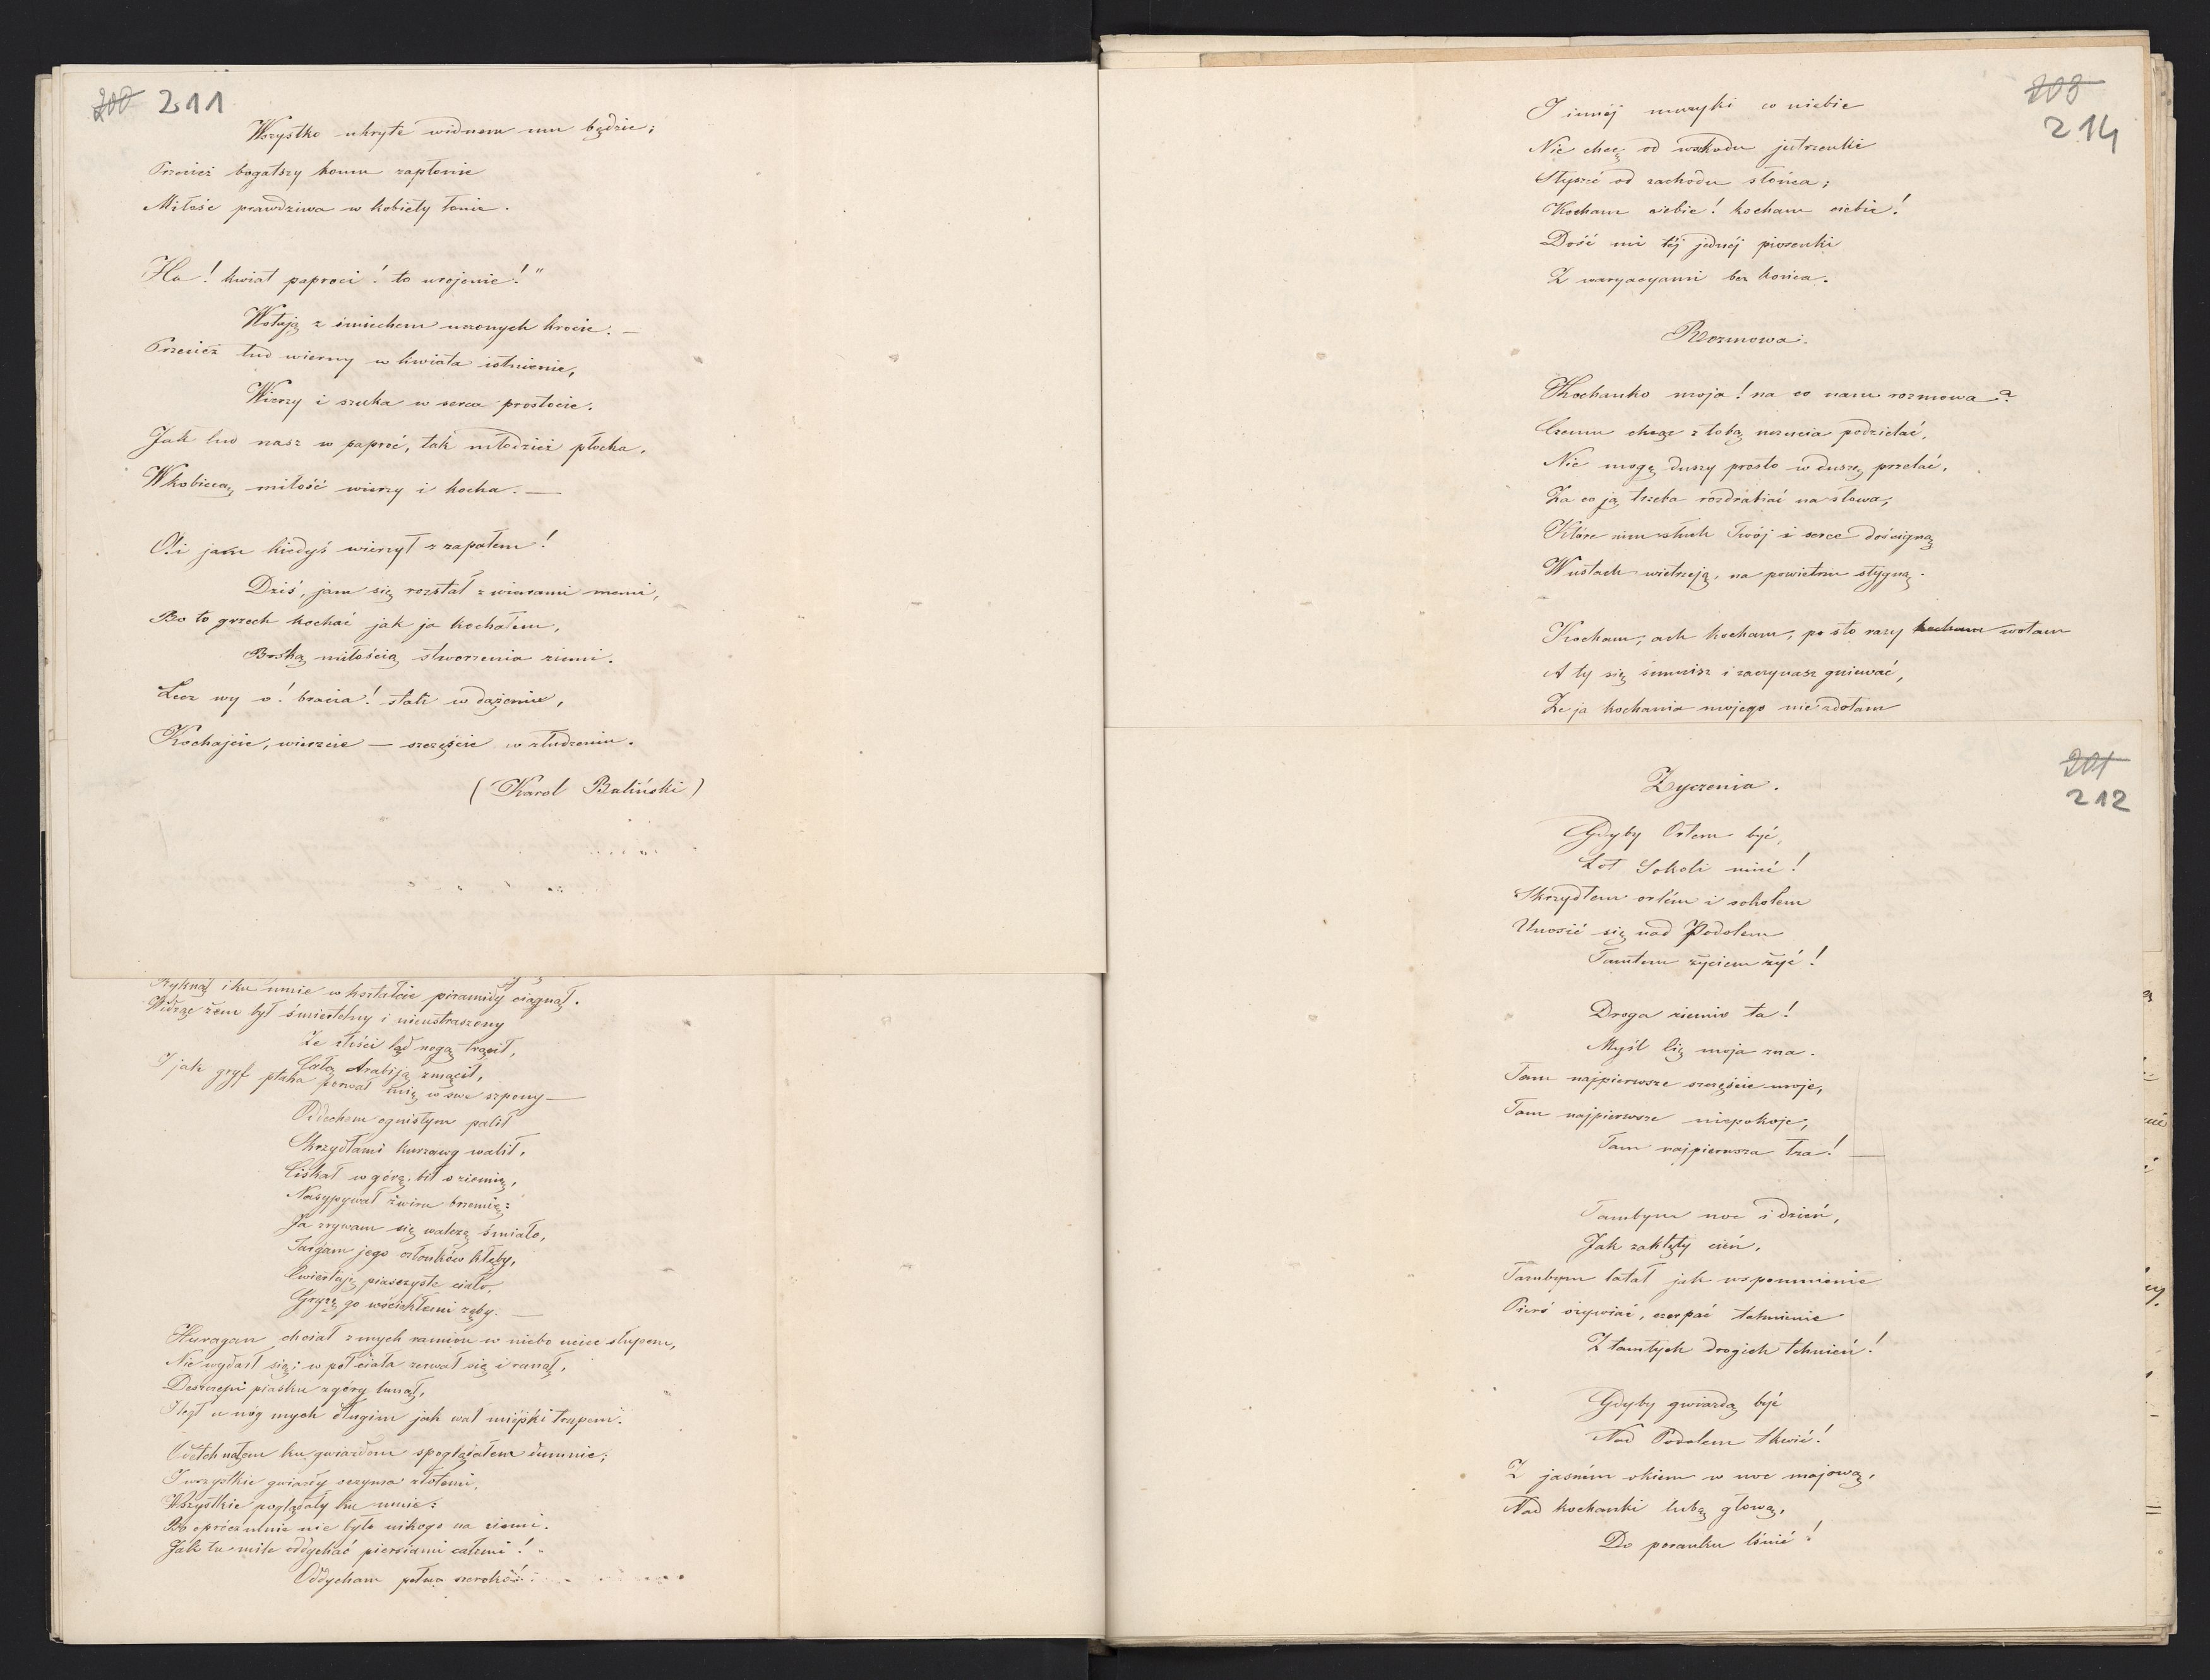 200 211
Wszystko ukryte widnem mu będzie;
Przecież bogatszy komu zapłonie
Miłość prawdziwa w kobiéty łonie.
Ha! kwiat paproci! to urojenie!"
Wołają z śmiechem uczonych krocie. —
Przecież lud wierny w kwiata istnienie,
Wierzy i szuka w serca prostocie.
Jak lud nasz w paproć, tak młodzież płocha,
W kobiecą, miłość wierzy i kocha. —
O! i jam kiedyś wierzył z zapałem!
Dziś, jam się rozstał z wiarami memi,
Bo to grzech kochać jak ja kochałem,
Boską miłością stworzenia ziemi.
Lecz wy o! bracia! stali w dążeniu,
Kochajcie, wierzcie — szczęście w złudzeniu.
(Karol Baliński)
Ryknął i ku mnie w kształcie piramidy ciągnął.
Widząc żem był śmiertelny i nieustraszony
Ze złości ląd nogą trącił,
Całą Arabiją zmącił,
I jak gryf ptaka porwał mię w swe szpony —
Oddechem ognistym palił
Skrzydłami kurzawy walił,
Ciskał w górę, bił o ziemię,
Nasypywał żwiru brzemię:
Ja zrywam się walczę śmiało,
Targam jego członków kłęby,
Ćwiertuję piasczyste ciało,
Gryzę go wściekłemi zęby. —
Huragan chciał z mych ramion w niebo uciec słupem,
Nie wydarł się; w pół ciała zerwał się i runął,
Deszczem piasku z góry lunął,
I legł u nóg mych długim jak wał miéjski trupem.
Odetchnąłem ku gwiazdom spoglądałem dumnie;
I wszystkie gwiazdy oczyma złotemi,
Wszystkie poglądały ku mnie:
Bo oprócz mnie nie było nikogo na ziemi.
Jak tu mile oddychać piersiami całemi!
Oddycham pełno szeroko!
208
214
I innéj muzyki co niebie
Nie chcę od wschodu jutrzenki
Słyszéć od zachodu słońca;
Kocham ciebie! kocham ciebie!
Dość mi téj jednéj piosenki
Z waryacyami bez końca.
Rozmowa.
Kochanko moja! na co nam rozmowa?
Czemu chcąc z tobą uczucia podzielać,
Nie mogę duszy prosto w duszę przelać,
Za co ją trzeba rozdrabiać na słowa,
Które nim słuch Twój i serce doścигną
W ustach wietrzeją, na powietrzu stygną.
Kocham, ach kocham, po sto razy kocham wołam
A ty się smucisz i zaczynasz gniewać,
Że ja kochania mojego nie zdołam
201
212
Zyczenia.
Gdyby Orłem być,
Lot Sokoli mieć!
Skrzydłem orlém i sokolem
Unosić się nad Podolem
Tamtem życiem żyć!
Droga ziemio ta!
Myśl Cię moja zna.
Tam najpierwsze szczęście moje,
Tam najpierwsze niepokoje,
Tam najpierwsza łza! —
Tambym noc i dzień,
Jak zaklęty cień,
Tambym latał jak wspomnienie
Pierś ożywiać, czerpać tchnienie
Z tamtych drogich tchnień!
Gdyby gwiazdą być
Nad Podolem tkwić!
Z jasném okiem w noc majową,
Nad kochanki lubą głową,
Do poranku lśnić!